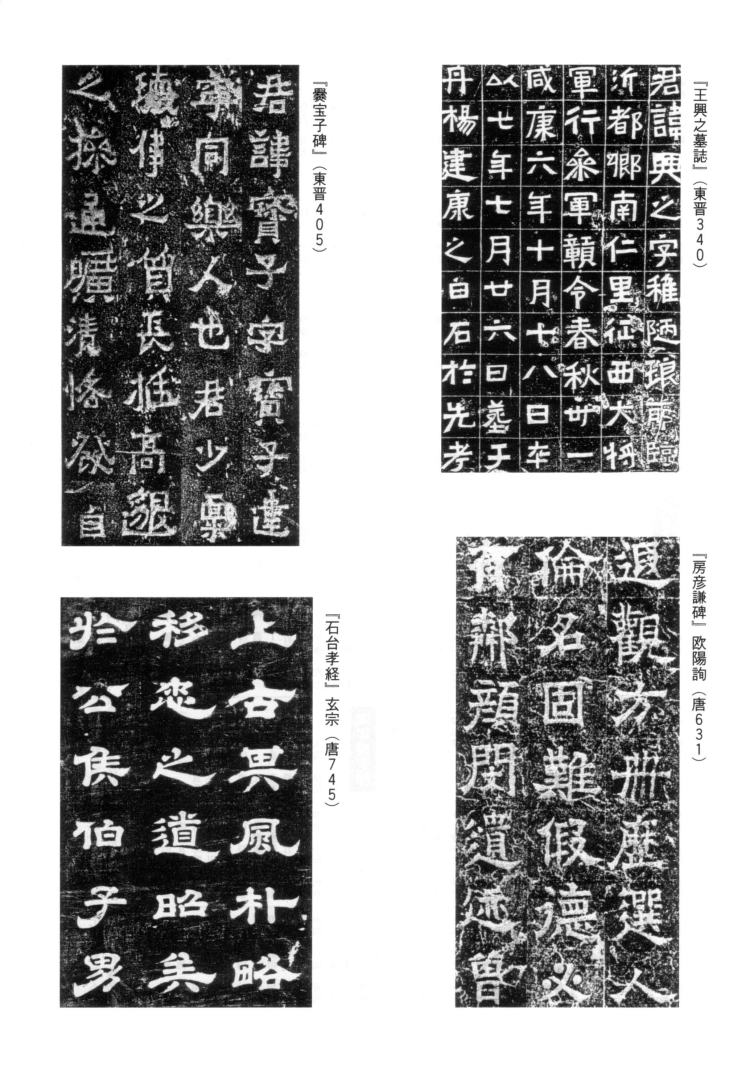 『王興之墓誌』（東晋340）
君諱興之字稚陋琅耶臨
沂都鄉南仁里征西大將
軍行叅軍贛令春秋卅一
咸康六年十月十八日卒
以七年七月廿六日葬于
丹楊建康之白石於先考
『爨宝子碑』（東晋405）
君諱寶子字寶子建
寧同樂人也君少稟
瓌偉之質長挺高邈
之操通曠清恪發自
『房彦謙碑』 欧陽詢（唐631）
遐觀方冊歷選人
倫名固難假德必
有鄰顏閔遺迹曾
『石台孝経』 玄宗（唐745）
上古其風朴略
移忠之道昭矣
於公侯伯子男